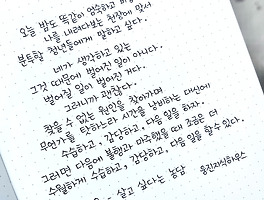 오늘 밤도 똑같이 엄숙하고
나를 내려다보는 천장에 맞서
분투할 청년들에게 말하고 싶다.
네가 생각하고 있는
그것 때문에 벌어진 일이 아니다.
벌어질 일이 벌어진 거다.
그러니까 괜찮다.
찾을 수 없는 원인을 찾아가며
무언가를 탓하느라 시간을 낭비하는 대신에
수습하고, 감당하고, 다음 일을 하자.
그러면 다음에 불행과 마주했을 때 조금은 더
수월하게 수습하고, 감당하고, 다음 일을 할 수 있다.
- 살고 싶다는 농담